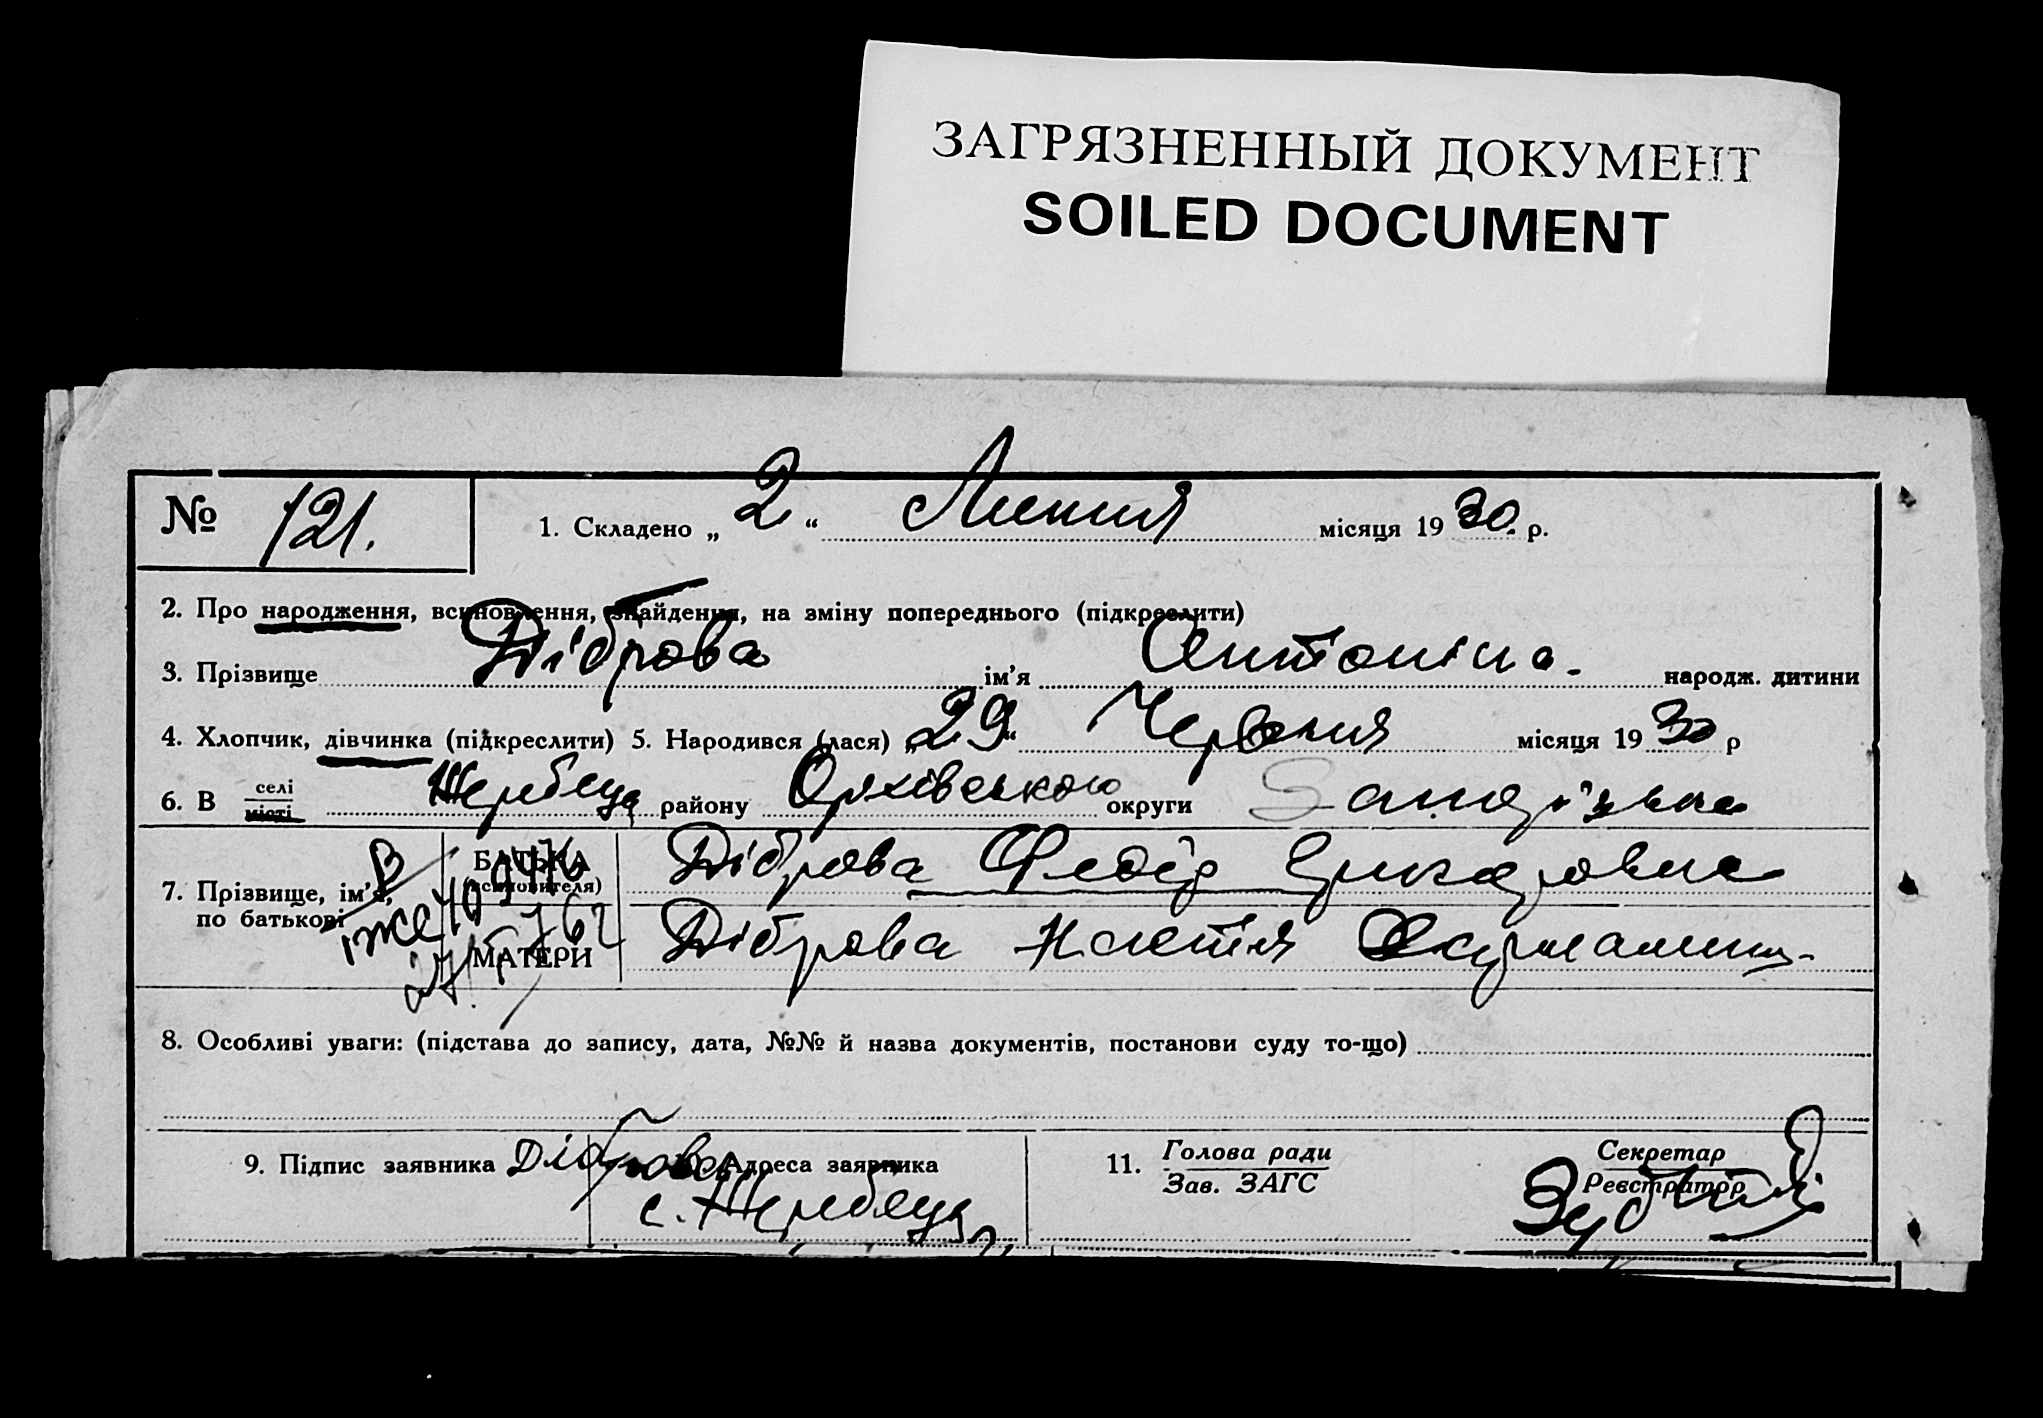 ЗАГРЯЗНЕННЫЙ ДОКУМЕНТ
SOILED DOCUMENT
№ 121. 1. Складено „ 2 “ Липня місяця 19 30. р.
2. Про народження, всиновлення, знайдення, на зміну попереднього (підкреслити)
3. Прізвище Діброва ім'я Антоніна. народж. дитини
4. Хлопчик, дівчинка (підкреслити) 5. Народився (лася) „ 29 “ Червня місяця 19 30 р
6. В селі місті Жеребець району Оріхівського округи
7. Прізвище, ім'я, по батькові
БАТЬКА (всиновителя) Діброва Федір
МАТЕРИ Діброва Настя
8. Особливі уваги: (підстава до запису, дата, №№ й назва документів, постанови суду то-що)
9. Підпис заявника Діброва Адреса заявника
с. Жеребець
11. Голова ради Зав. ЗАГС
Секретар Реєстратор